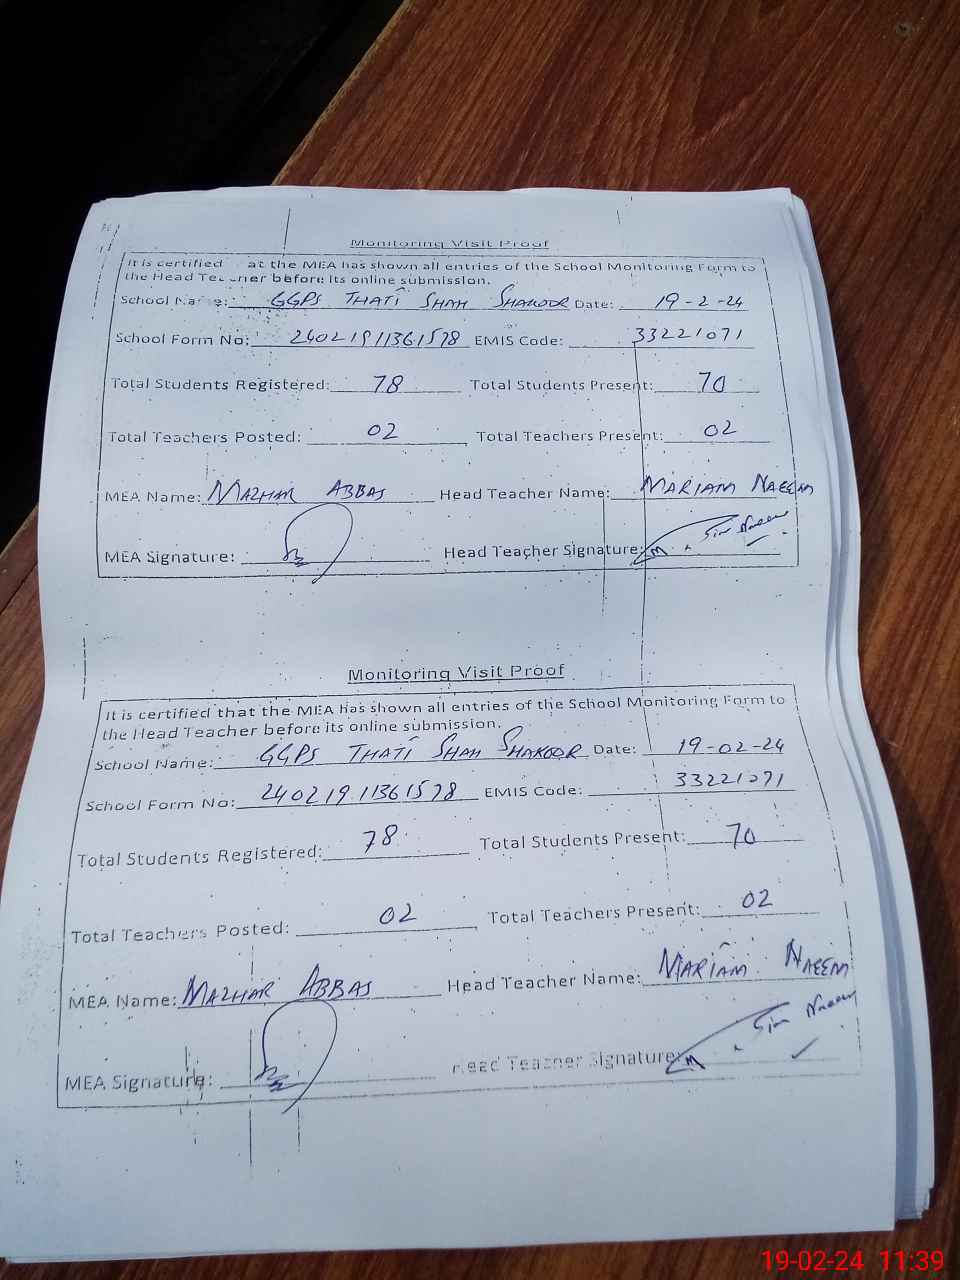 Monitoring Visit Proof
It is certified at the MEA has shown all entries of the School Monitoring Form to
the Head Teacher before its online submission.
School Name: GGPS THATI SHAH SHAKOOR Date: 19-2-24
School Form No: 24021911361578 EMIS Code: 33221071
Total Students Registered: 78 Total Students Present: 70
Total Teachers Posted: 02 Total Teachers Present: 02
MEA Name: MAZHAR ABBAS Head Teacher Name: MARIAM NAEEM
MEA Signature: Head Teacher Signature:
Monitoring Visit Proof
It is certified that the MEA has shown all entries of the School Monitoring Form to
the Head Teacher before its online submission.
School Name: GGPS THATI SHAH SHAKOOR Date: 19-02-24
School Form No: 24021911361578 EMIS Code: 33221071
Total Students Registered: 78 Total Students Present: 70
Total Teachers Posted: 02 Total Teachers Present: 02
MEA Name: MAZHAR ABBAS Head Teacher Name: MARIAM NAEEM
MEA Signature: Head Teacher Signature:
19-02-24 11:39